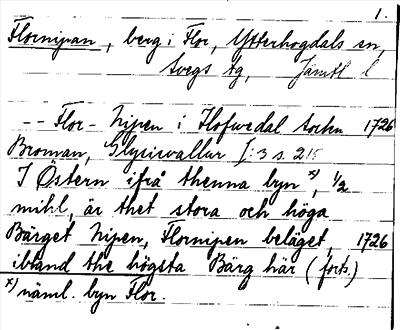 1.
Flornipan, berg i Flor, Ytterhogdals sn,
Svegs tg, Jämtl l
-- Flor-Nipen i Hofwedal sochn 1726
Broman, Glysisvallur I:3 s. 215
I Östern ifrå thenna byn x), 1/2
mihl, är thet stora och höga
Bärget Nipen, Flornipen beläget, 1726
ibland the högsta Bärg här (forts.)
x) näml. byn Flor.